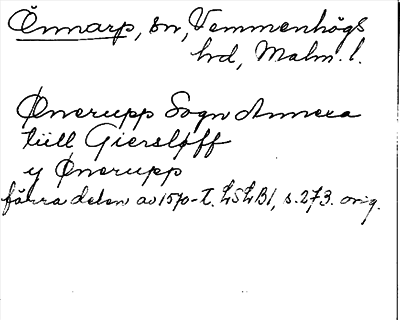 Önnarp, sn, Vemmenhögs
hd, Malm. l.
Ønerupp Sogn Annexa
tüll Giersløff
y Ønerupp
förra delen av 1570-t. LSLB1, s. 273. orig.